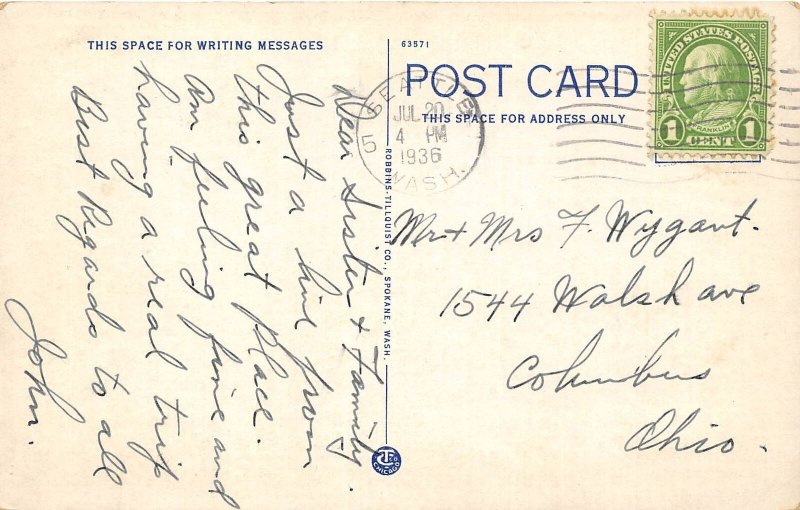 THIS SPACE FOR WRITING MESSAGES
Dear Sister & Family.
Just a line from
this great place.
Am feeling fine and
having a real trip
Best Regards to all
John.
63571
POST CARD
THIS SPACE FOR ADDRESS ONLY
SEATTLE
JUL 20
4 PM
1936
WASH.
5
UNITED STATES POSTAGE
FRANKLIN
1 CENT 1
Mr + Mrs F. Wygant.
1544 Walsh ave
Columbus
Ohio.
ROBBINS-TILLQUIST CO., SPOKANE, WASH.
CHICAGO